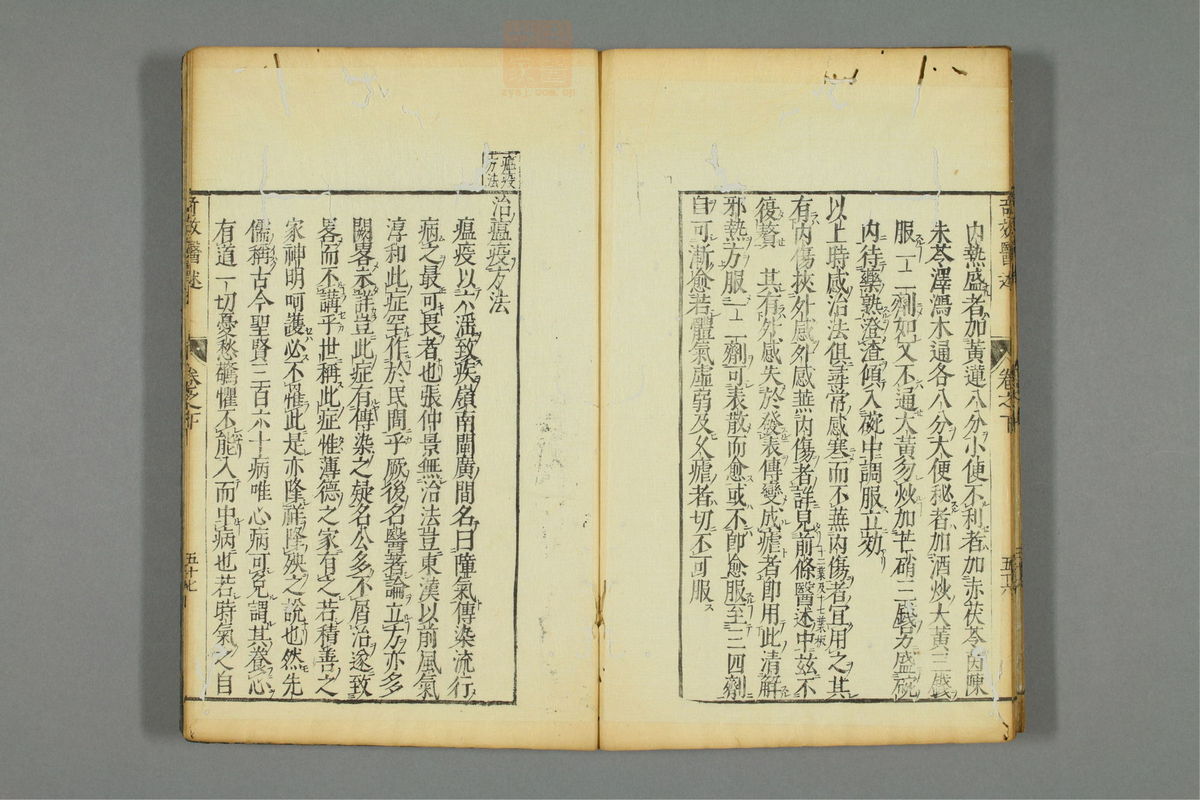 内熱盛者加黄連八分小便不利者加赤茯苓茵陳
朱苓澤瀉木通各八分大便秘者加酒炒大黄三戔
服一二劑如又不通大黄勿炒加芒硝三戔另盛碗
内待藥熟澄渣傾入碗中調服立効
以上時感治法俱尋常感寒而不兼内傷者宜用之其
有内傷挾外感外感兼内傷者詳見前條醫述中玆不
復贅　其有外感失於發表傳變成瘧者即用此清解
邪熱方服一二劑可表散而愈或不即愈服至三四劑
自可漸愈若體氣虚弱及久瘧者切不可服
奇效醫述
卷之下
五十六
瘟疫方法
治瘟疫方法
瘟疫以六滛致疾嶺南閩廣間名曰障氣傳染流行
病之最可畏者也張仲景無治法豈東漢以前風氣
淳和此症罕作於民間乎厥後名醫著論立方亦多
闕畧未詳豈此症有傳染之疑名公多不屑治遂致
畧而不講乎世稱此症惟薄德之家有之若積善之
家神明呵護必不罹此是亦隆祥隆殃之說也然先
儒稱古今聖賢三百六十病唯心病可免謂其養心
有道一切憂愁驚懼不能入而中病也若時氣之自
奇效醫述
卷之下
五十七